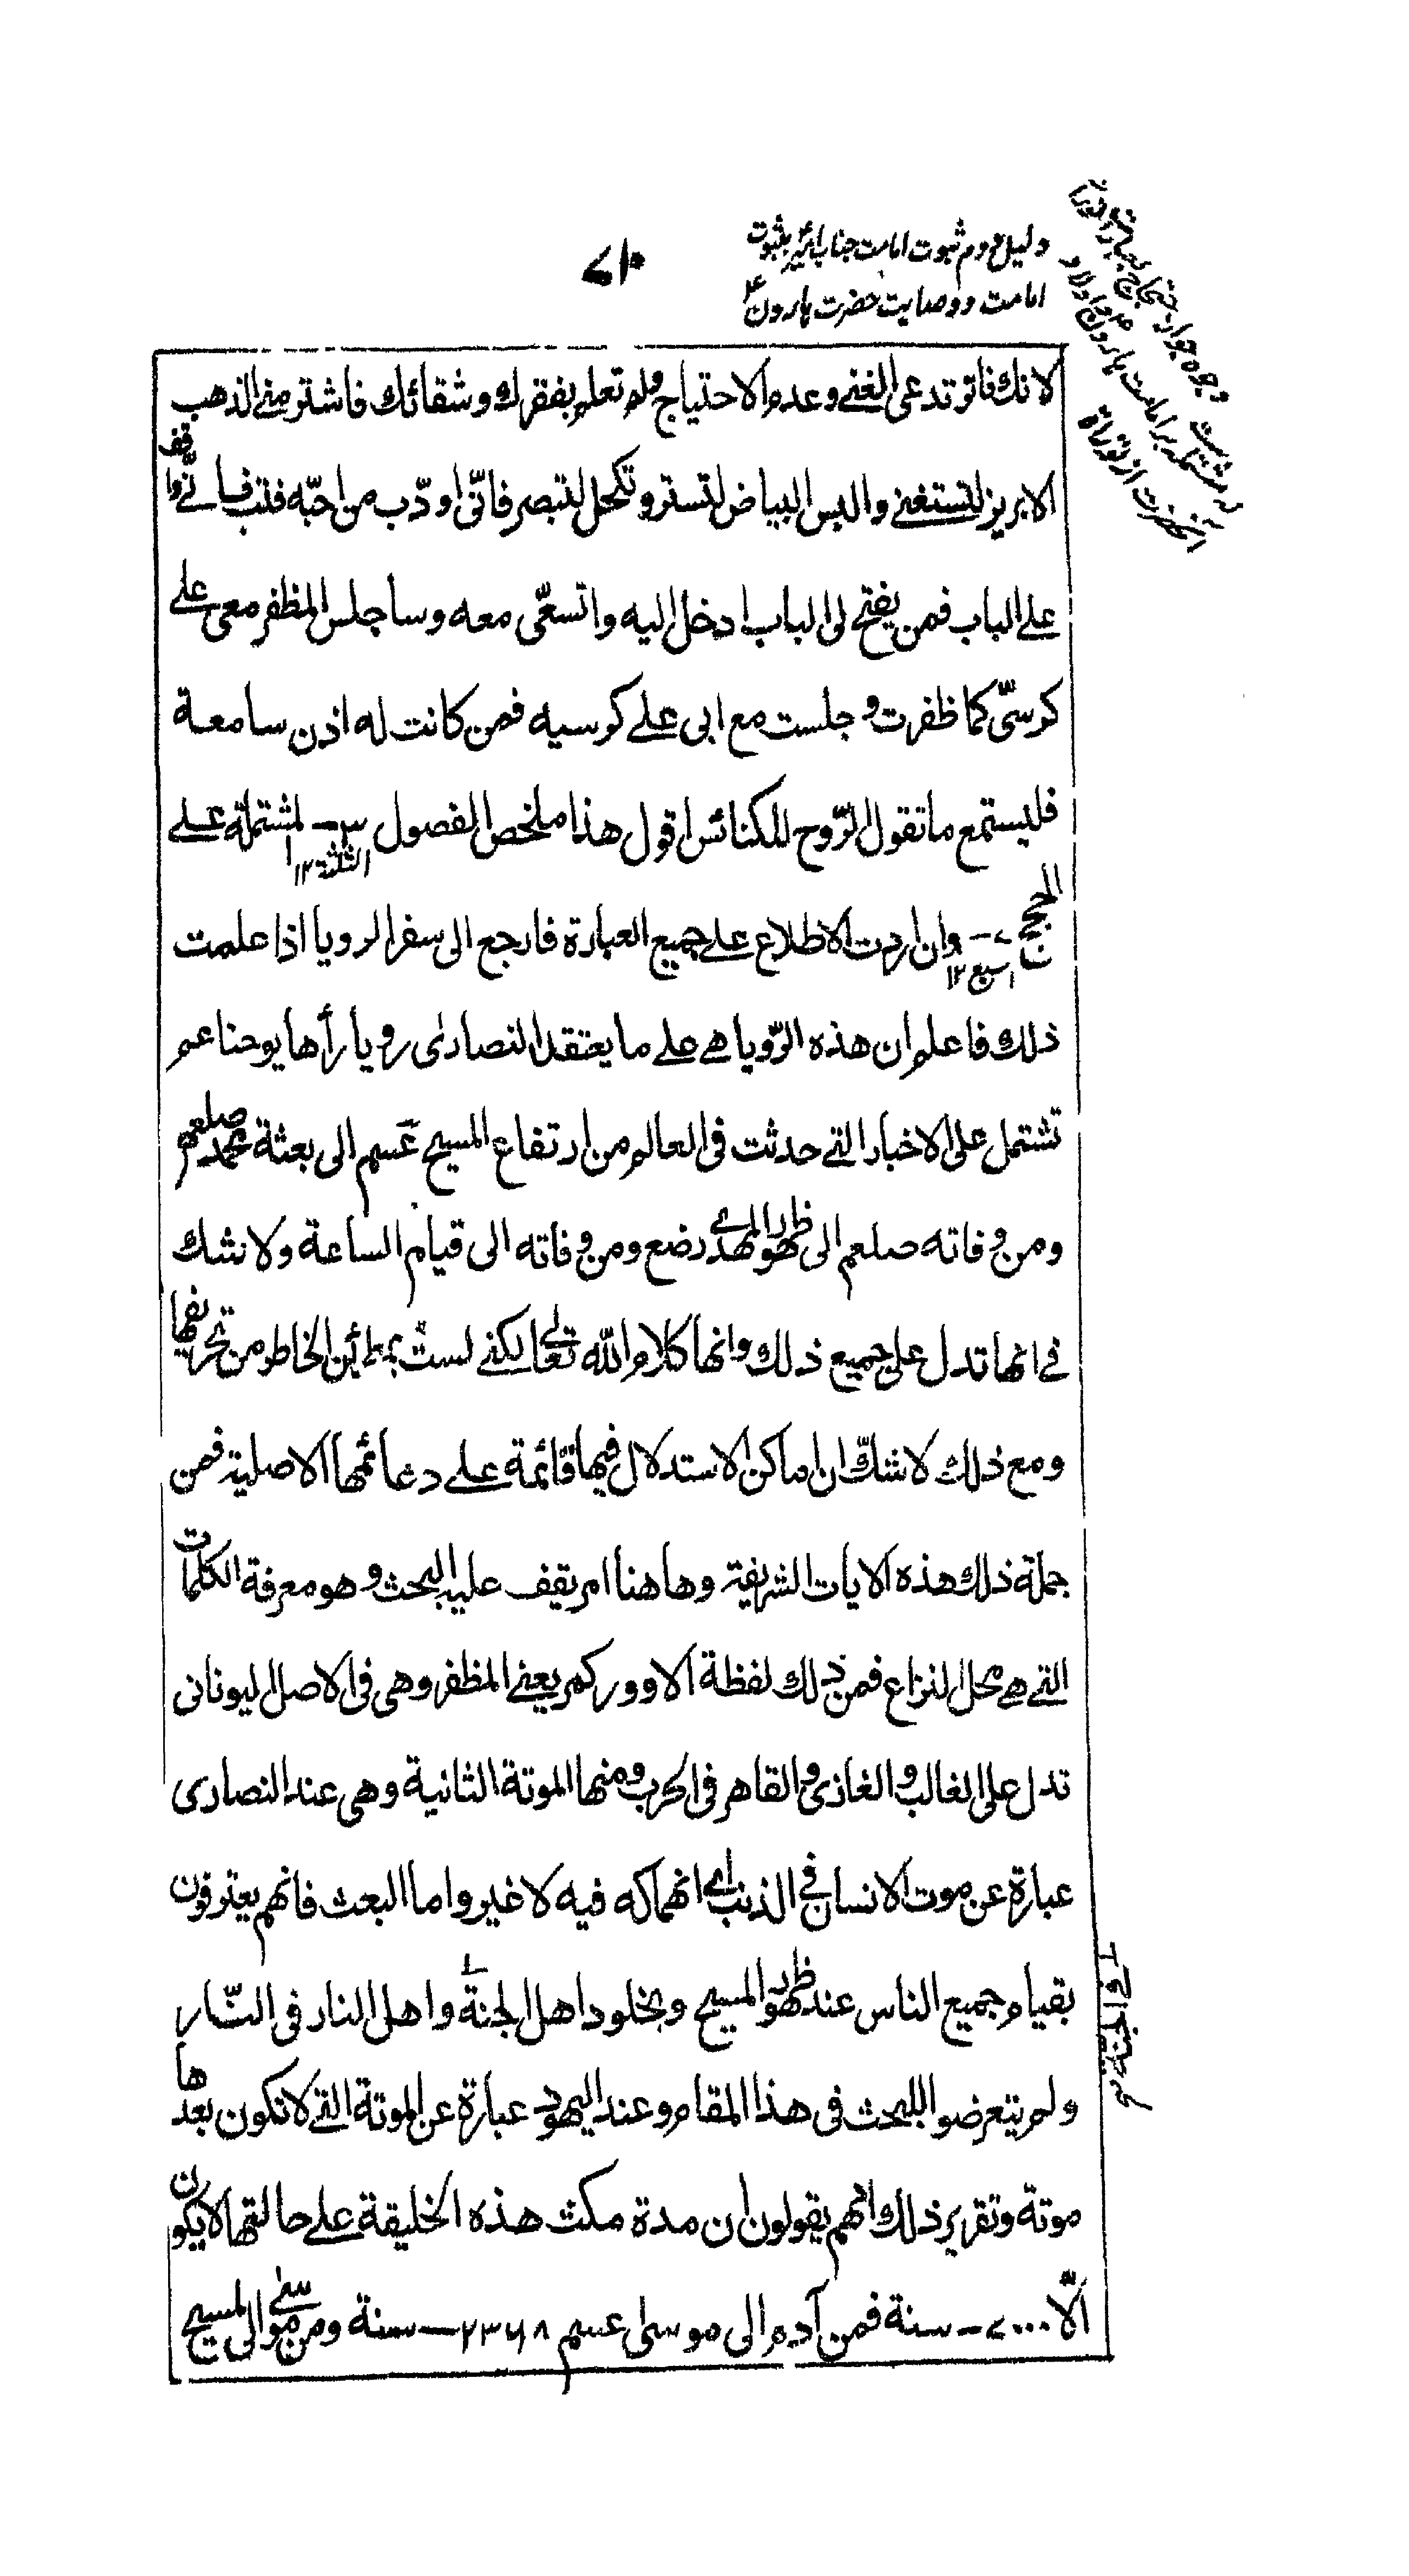 دلیل دوم ثبوت امامت جناب امیرؑ بثبوت
امامت و وصایت حضرت ہارونؑ
۷۱۰
لانك فاتر تدعى الغنى وعدم الاحتياج ولم تعلم بفقرك وشقائك فاشتر منى الذهب
الابريز لتستغنى والبس البياض لتستتر وتكحل لتبصر فانّى اودّب من احبّه فتب فانّى واقف
على الباب فمن يفتح لى الباب ادخل اليه واتسعّى معه وساجلس المظفر معى على
كرسىّ كما ظفرت وجلست مع ابى على كرسيه فمن كانت له اذن سامعة
فليستمع ما تقول الرّوح للكنائس اقول هذا ملخص الفصول ۳ المشتملة على
الثلثة ۱۲
الحجج ۷ وان اردت الاطلاع على جميع العبارة فارجع الى سفر الرويا اذا علمت
السبع ۱۲
ذلك فاعلم ان هذه الرّويا هى على ما يعتقد النصارى رويا رأها يوحنا عم
تشتمل على الاخبار التى حدثت فى العالم من ارتفاع المسيح عسم الى بعثة محمد صلعم
ومن وفاته صلعم الى ظهور المهدى رضع ومن وفاته الى قيام الساعة ولا نشك
فى انها تدل على جميع ذلك وانها كلام الله تعالى لكنى لست بمطمئن الخاطر من تحريفها
ومع ذلك لا شكّ ان اماكن الاستدلال فيها قائمة على دعائمها الاصلية فمن
جملة ذلك هذه الايات الشريفة وهاهنا امر يقف عليه البحث وهو معرفة الكلمات
التى هى محل النزاع فمن ذلك لفظة الاووركمر يعنى المظفر وهى فى الاصل اليونانى
تدل على الغالب والغازى والقاهر فى الحرب ومنها الموتة الثانية وهى عند النصارى
عبارة عن موت الانسان فى الذنب اى انهماكه فيه لا غير واما البعث فانهم يعترفون
بقيام جميع الناس عند ظهور المسيح وبخلود اهل الجنة واهل النار فى النّار
ولم يتعرضوا للبحث فى هذا المقام وعند اليهود عبارة عن الموتة التى لا تكون بعدها
موتة وتقرير ذلك انهم يقولون ان مدة مكث هذه الخليقة على حالتها لا يكون
الّا ۷۰۰۰ سنة فمن آدم الى موسى عسم ۲۳۶۸ سنة ومن موسى الى المسيح